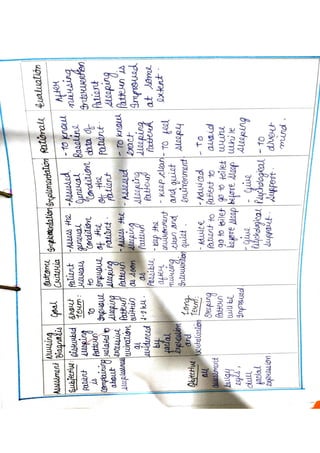 Assessment
Subjective:
Patient
is
complaining
about
sleepness
Objective
as
assessment
heavy
eyes,
dull
facial
expression
Nursing
Diagnosis
disturbed
sleeping
pattern
related to
excessive
urination
as
evidenced
by
facial
expression
and
verbalization
Goal
Short
Term:
To
Improve
sleeping
pattern
within
Long
Term:
Sleeping
Pattern
will be
Improved
Outcome
Criteria
Patient
needs
to
Improve
sleeping
pattern
as soon
as
possible
after
nursing
Intervention
Implementation
- Asses the
General
Condition
of the
Patient
- Asses the
sleeping
Pattern
- Keep the
environment
clean and
quiet.
- Advice
Patient to
go to toilet
before sleep
- Give
Psychological
support.
Implementation
- Assessed
General
Condition
of the
Patient
- Assessed
sleeping
Pattern
- Keep clean
and quiet
environment
- Adviced
Patient to
go to toilet
before sleep
- Give
Psychological
support
Rationale
- To know
Baseline
data of
Patient
- To know
exact
sleeping
Pattern
- To feel
sleepy
- To
avoid
urine
while
sleeping
- To
divert
mind.
Evaluation
After
nursing
Intervention
Patient
sleeping
Pattern is
Improved
at some
extent.